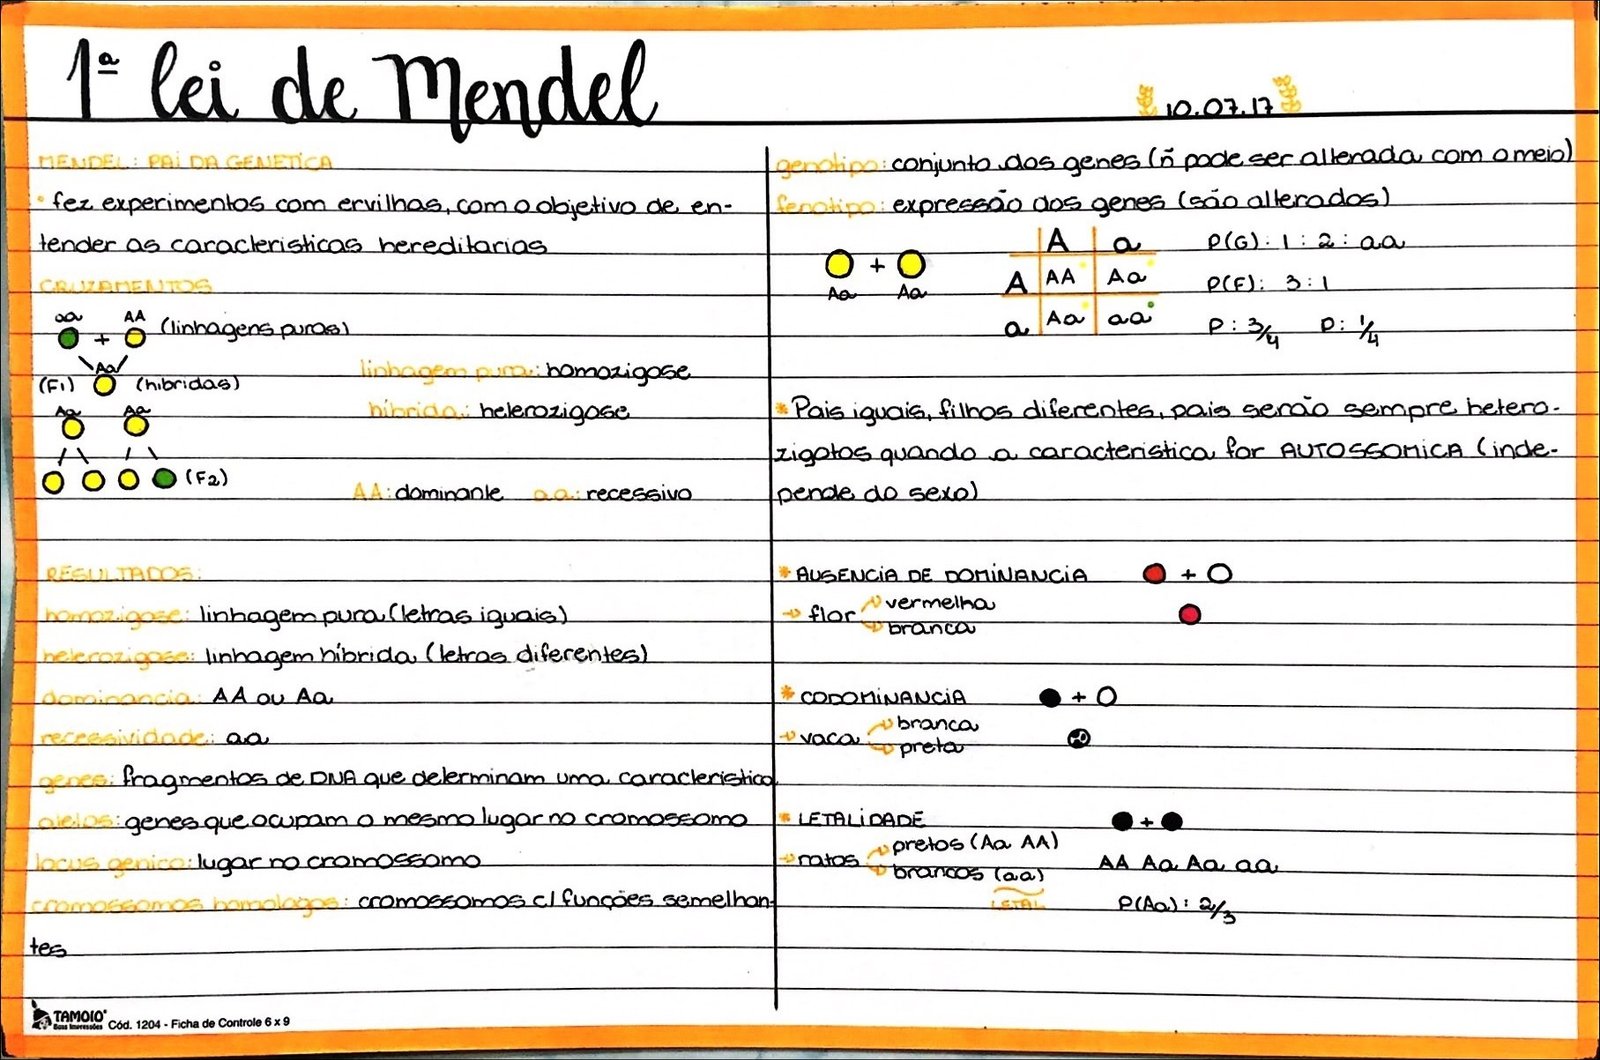 1ª lei de Mendel
10.07.17
MENDEL: PAI DA GENETICA
• fez experimentos com ervilhas, com o objetivo de en-
tender as caracteristicas hereditarias
CRUZAMENTOS
aa AA
+ (linhagens puras)
Aa
(F1) (hibridas)
linhagem pura: homozigose
Aa Aa
híbrida: heterozigose
(F2)
AA: dominante aa: recessivo
RESULTADOS:
homozigose: linhagem pura (letras iguais)
heterozigose: linhagem híbrida (letras diferentes)
dominancia: AA ou Aa
recessividade: aa
genes: fragmentos de DNA que determinam uma caracteristica
alelos: genes que ocupam o mesmo lugar no cromossomo
locus genico: lugar no cromossomo
cromossomos homologos: cromossomos c/ funções semelhan-
tes
genotipo: conjunto dos genes (ñ pode ser alterada com o meio)
fenotipo: expressão dos genes (são alterados)
+
Aa Aa
A a
A AA Aa
a Aa aa
P(G): 1 : 2 : aa
P(F): 3 : 1
P: 3/4 P: 1/4
* Pais iguais, filhos diferentes, pais serão sempre hetero-
zigotos quando a caracteristica for AUTOSSOMICA (inde-
pende do sexo)
* AUSENCIA DE DOMINANCIA +
→ flor → vermelha
→ branca
* CODOMINANCIA +
→ vaca → branca
→ preta
* LETALIDADE +
→ ratos → pretos (Aa AA)
→ brancos (aa)
LETAL
AA Aa Aa aa
P(Aa): 2/3
TAMOIO
Boas Impressões
Cód. 1204 - Ficha de Controle 6 x 9